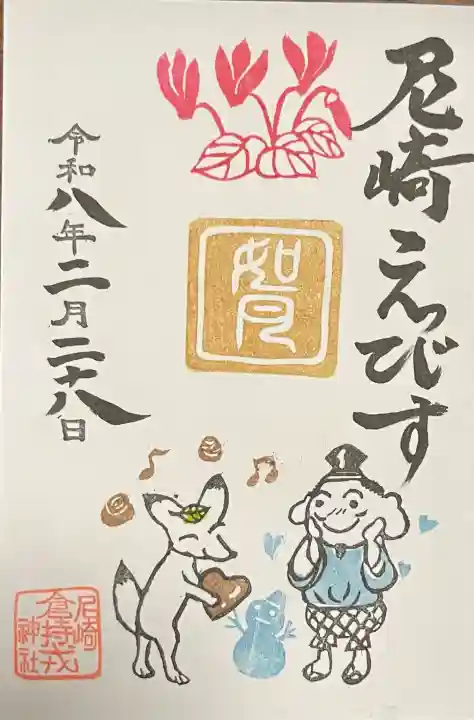 尼崎えびす
如月
令和八年二月二十八日
尼崎
倉持戎
神社